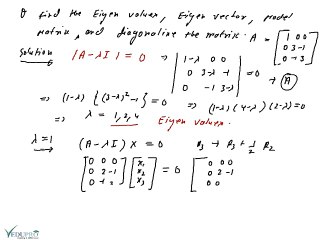 Q find the Eigen values, Eigen vector, model
matrix, and diagonalise the matrix. A = [1 0 0
0 3 -1
0 -1 3]
Solution |A-λI| = 0 ⇒ |1-λ 0 0
0 3-λ -1
0 -1 3-λ| = 0
⇒ (1-λ) {(3-λ)²-1} = 0 ⇒ (1-λ)(4-λ)(2-λ)=0
⇒ λ = 1, 2, 4 Eigen values.
λ=1 ⇒ (A-λI) X = 0 R3 → R3 + 1/2 R2
[0 0 0
0 2 -1
0 -1 2] [x1
x2
x3] = 0 [0 0 0
0 2 -1
0 0
VEDUPRO